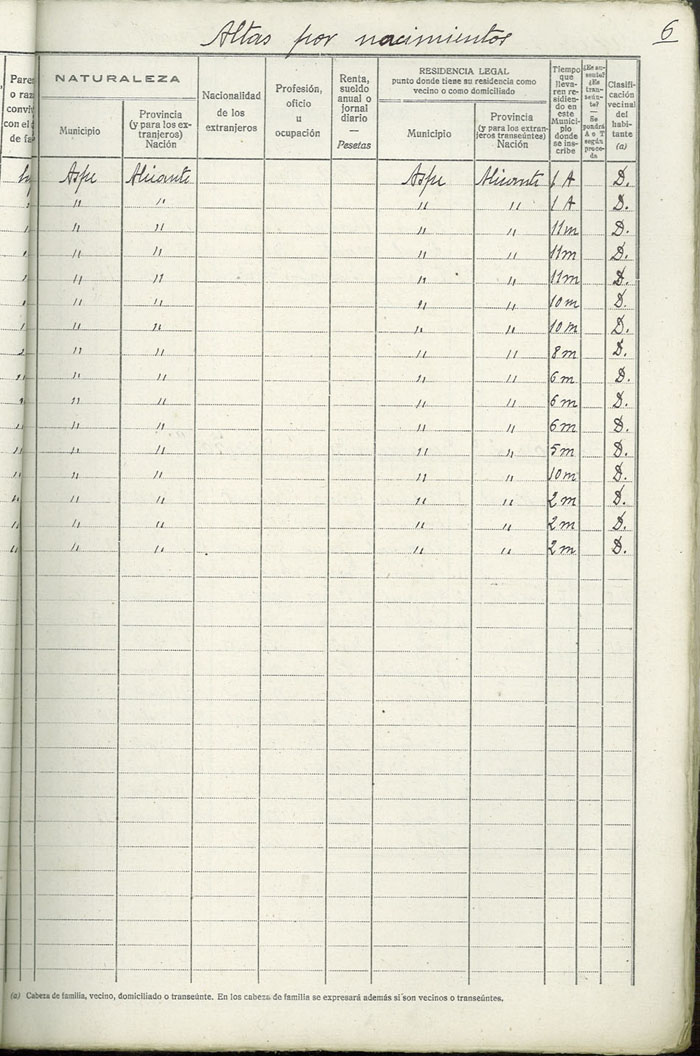 Altas por nacimientos 6
Pare
o raz
convi
con el
de fa
NATURALEZA
Municipio
Provincia
(y para los ex-
tranjeros)
Nación
Nacionalidad
de los
extranjeros
Profesión,
oficio
u
ocupación
Renta,
sueldo
anual o
jornal
diario
—
Pesetas
RESIDENCIA LEGAL
punto donde tiene su residencia como
vecino o como domiciliado
Municipio
Provincia
(y para los extran-
jeros transeúntes)
Nación
Tiempo
que
lleva-
ren re-
sidien-
do en
este
Munici-
pio
donde
se ins-
cribe
¿Es au-
sente?
¿Es
tran-
seún-
te?
—
Se
pondrá
A o T
según
proce-
da
Clasifi-
cación
vecinal
del
habi-
tante
(a)
Aspe Alicante Aspe Alicante 1 A D.
" " " " 1 A D.
" " " " 11 m D.
" " " " 11 m D.
" " " " 11 m D.
" " " " 10 m D.
" " " " 10 m D.
" " " " 8 m D.
" " " " 6 m D.
" " " " 6 m D.
" " " " 6 m D.
" " " " 5 m D.
" " " " 10 m D.
" " " " 2 m D.
" " " " 2 m D.
" " " " 2 m D.
(a) Cabeza de familia, vecino, domiciliado o transeúnte. En los cabeza de familia se expresará además si son vecinos o transeúntes.